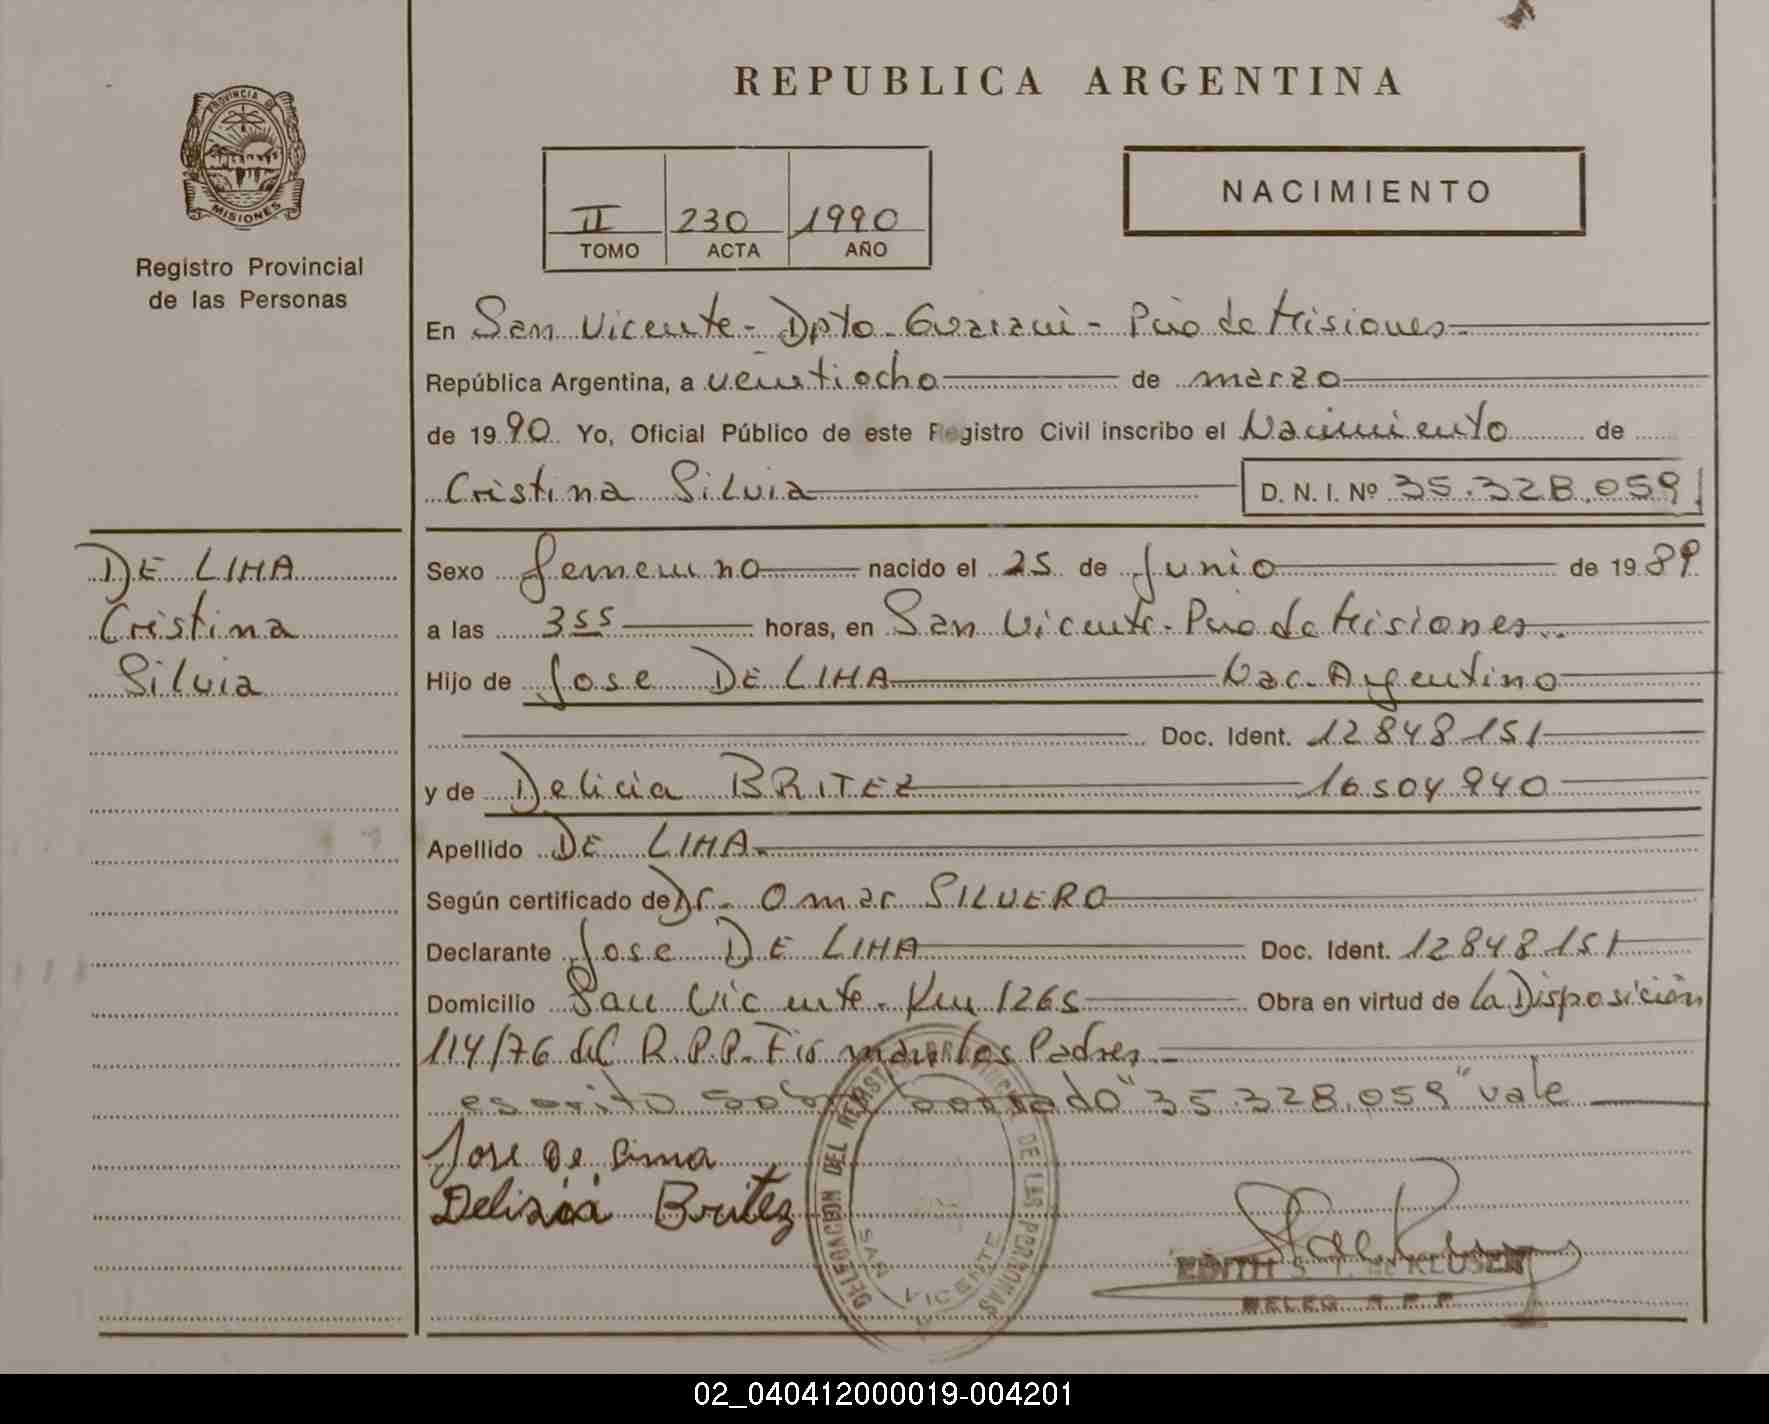 REPUBLICA ARGENTINA
PROVINCIA DE
MISIONES
Registro Provincial
de las Personas
II 230 1990
TOMO ACTA AÑO
NACIMIENTO
En San Vicente - Dpto - Guarani - Pcia de Misiones
República Argentina, a veintiocho de marzo
de 1990 Yo, Oficial Público de este Registro Civil inscribo el Nacimiento de
Cristina Silvia D. N. I. Nº 35.328.059
DE LIMA
Cristina
Silvia
Sexo femenino nacido el 25 de Junio de 1989
a las 3 55 horas, en San Vicente - Pcia de Misiones
Hijo de Jose DE LIMA Nac. Argentino
Doc. Ident. 12848151
y de Delicia BRITEZ 16504940
Apellido DE LIMA
Según certificado de Dr. Omar SILVERO
Declarante Jose DE LIMA Doc. Ident. 12848151
Domicilio San Vicente - Km 1265 Obra en virtud de la Disposición
114/76 del R.P.P. los Padres
escrito sobre borrado "35.328.059" vale
Jose De Lima
Delicia Britez
DELEGACION DEL REGISTRO PROVINCIAL DE LAS PERSONAS
SAN VICENTE
EDITH S. T. de KLUSEN
DELEG. R. P. P.
02_040412000019-004201